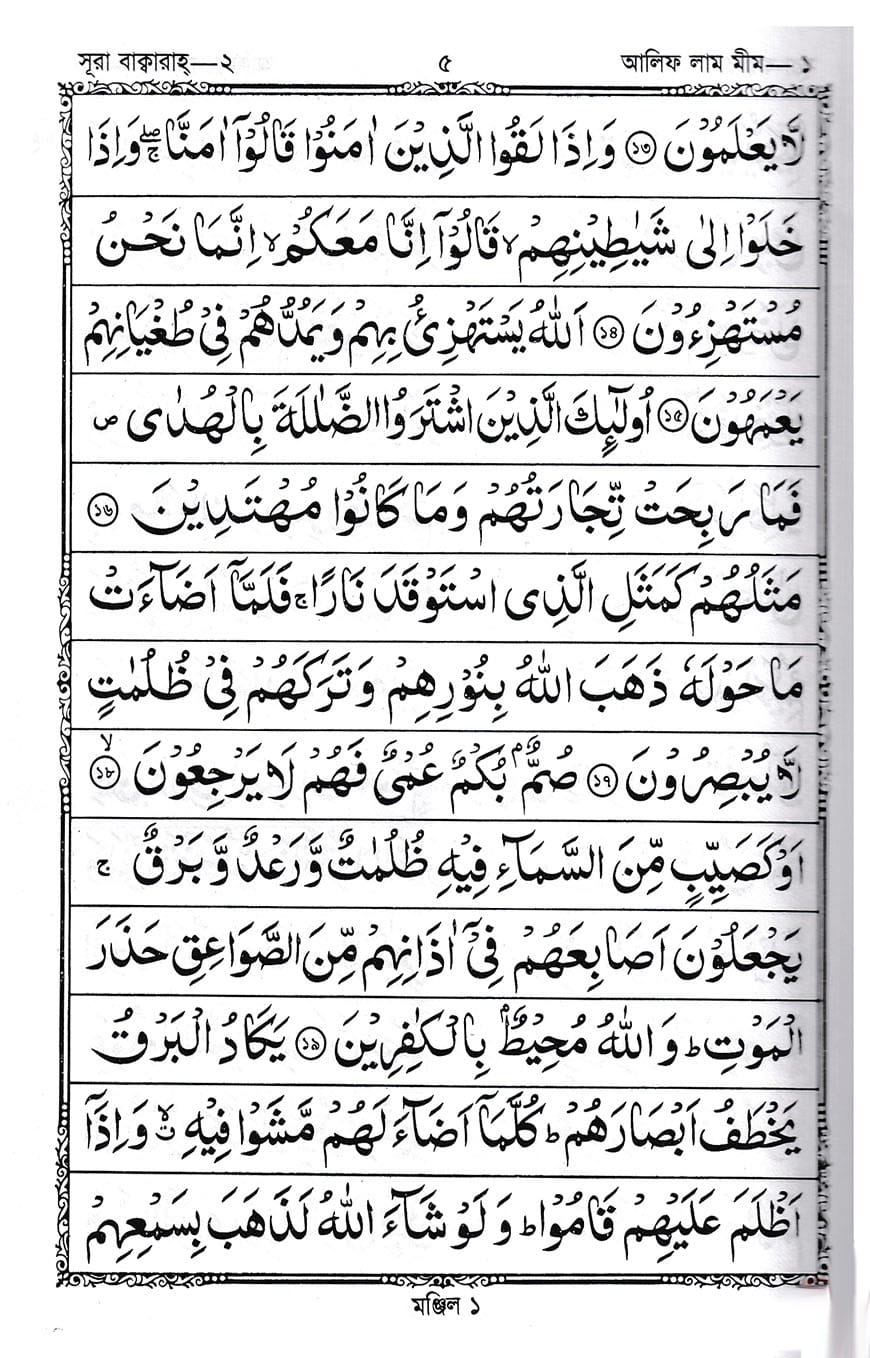 সূরা বাক্বারাহ্—২ ৫ আলিফ লাম মীম—১
لَّا يَعْلَمُوْنَ ১৩ وَاِذَا لَقُوا الَّذِيْنَ اٰمَنُوْا قَالُوْۤا اٰمَنَّا ۚۖ وَاِذَا
خَلَوْا اِلٰى شَيٰطِيْنِهِمْ ۙ قَالُوْۤا اِنَّا مَعَكُمْ ۙ اِنَّمَا نَحْنُ
مُسْتَهْزِءُوْنَ ১৪ اَللّٰهُ يَسْتَهْزِئُ بِهِمْ وَيَمُدُّهُمْ فِيْ طُغْيَانِهِمْ
يَعْمَهُوْنَ ১৫ اُولٰٓئِكَ الَّذِيْنَ اشْتَرَوُا الضَّلٰلَةَ بِالْهُدٰى ص
فَمَا رَبِحَتْ تِّجَارَتُهُمْ وَمَا كَانُوْا مُهْتَدِيْنَ ১৬
مَثَلُهُمْ كَمَثَلِ الَّذِى اسْتَوْقَدَ نَارًا ۚ فَلَمَّاۤ اَضَآءَتْ
مَا حَوْلَهٗ ذَهَبَ اللّٰهُ بِنُوْرِهِمْ وَتَرَكَهُمْ فِيْ ظُلُمٰتٍ
لَّا يُبْصِرُوْنَ ১৭ صُمٌّۢ بُكْمٌ عُمْىٌ فَهُمْ لَا يَرْجِعُوْنَ ১৮ ۙ
اَوْ كَصَيِّبٍ مِّنَ السَّمَآءِ فِيْهِ ظُلُمٰتٌ وَّرَعْدٌ وَّبَرْقٌ ج
يَجْعَلُوْنَ اَصَابِعَهُمْ فِيْۤ اٰذَانِهِمْ مِّنَ الصَّوَاعِقِ حَذَرَ
الْمَوْتِ ؕ وَاللّٰهُ مُحِيْطٌۢ بِالْكٰفِرِيْنَ ১৯ يَكَادُ الْبَرْقُ
يَخْطَفُ اَبْصَارَهُمْ ؕ كُلَّمَاۤ اَضَآءَ لَهُمْ مَّشَوْا فِيْهِ ۙ وَاِذَاۤ
اَظْلَمَ عَلَيْهِمْ قَامُوْا ؕ وَلَوْ شَآءَ اللّٰهُ لَذَهَبَ بِسَمْعِهِمْ
মঞ্জিল ১